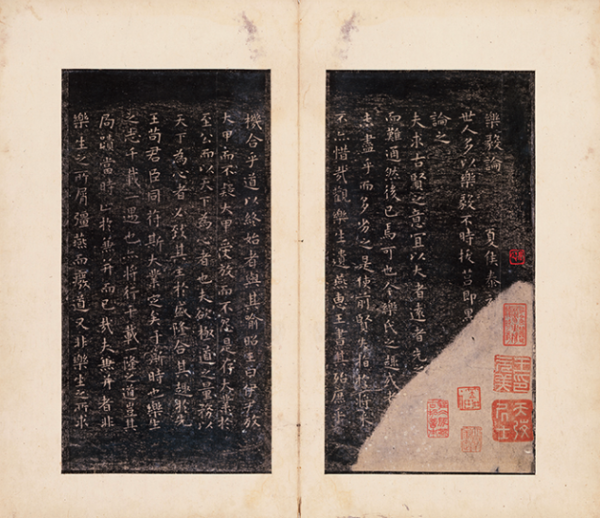 樂毅論 夏侯泰
世人多以樂毅不時拔莒即墨
論之
夫求古賢之意宜以大者遠者先之
而難通然後已焉可也今樂氏之趣或
未盡乎而多劣之是使前賢失指於將來
不亦惜哉觀樂生遺燕惠王書其殆庶乎
機合乎道以終始者與其喻昭王曰伊尹放
大甲而不疑大甲受放而不怨是存大業於
至公而以天下為心者也夫欲極道之量務以
天下為心者必致其主於盛隆合其趣於先
王苟君臣同符斯大業定矣于斯時也樂生
之志千載一遇也亦將行千載一隆之道豈其
局蹟當時止於兼并而已哉夫兼并者非
樂生之所屑彊燕而廢道又非樂生之所求